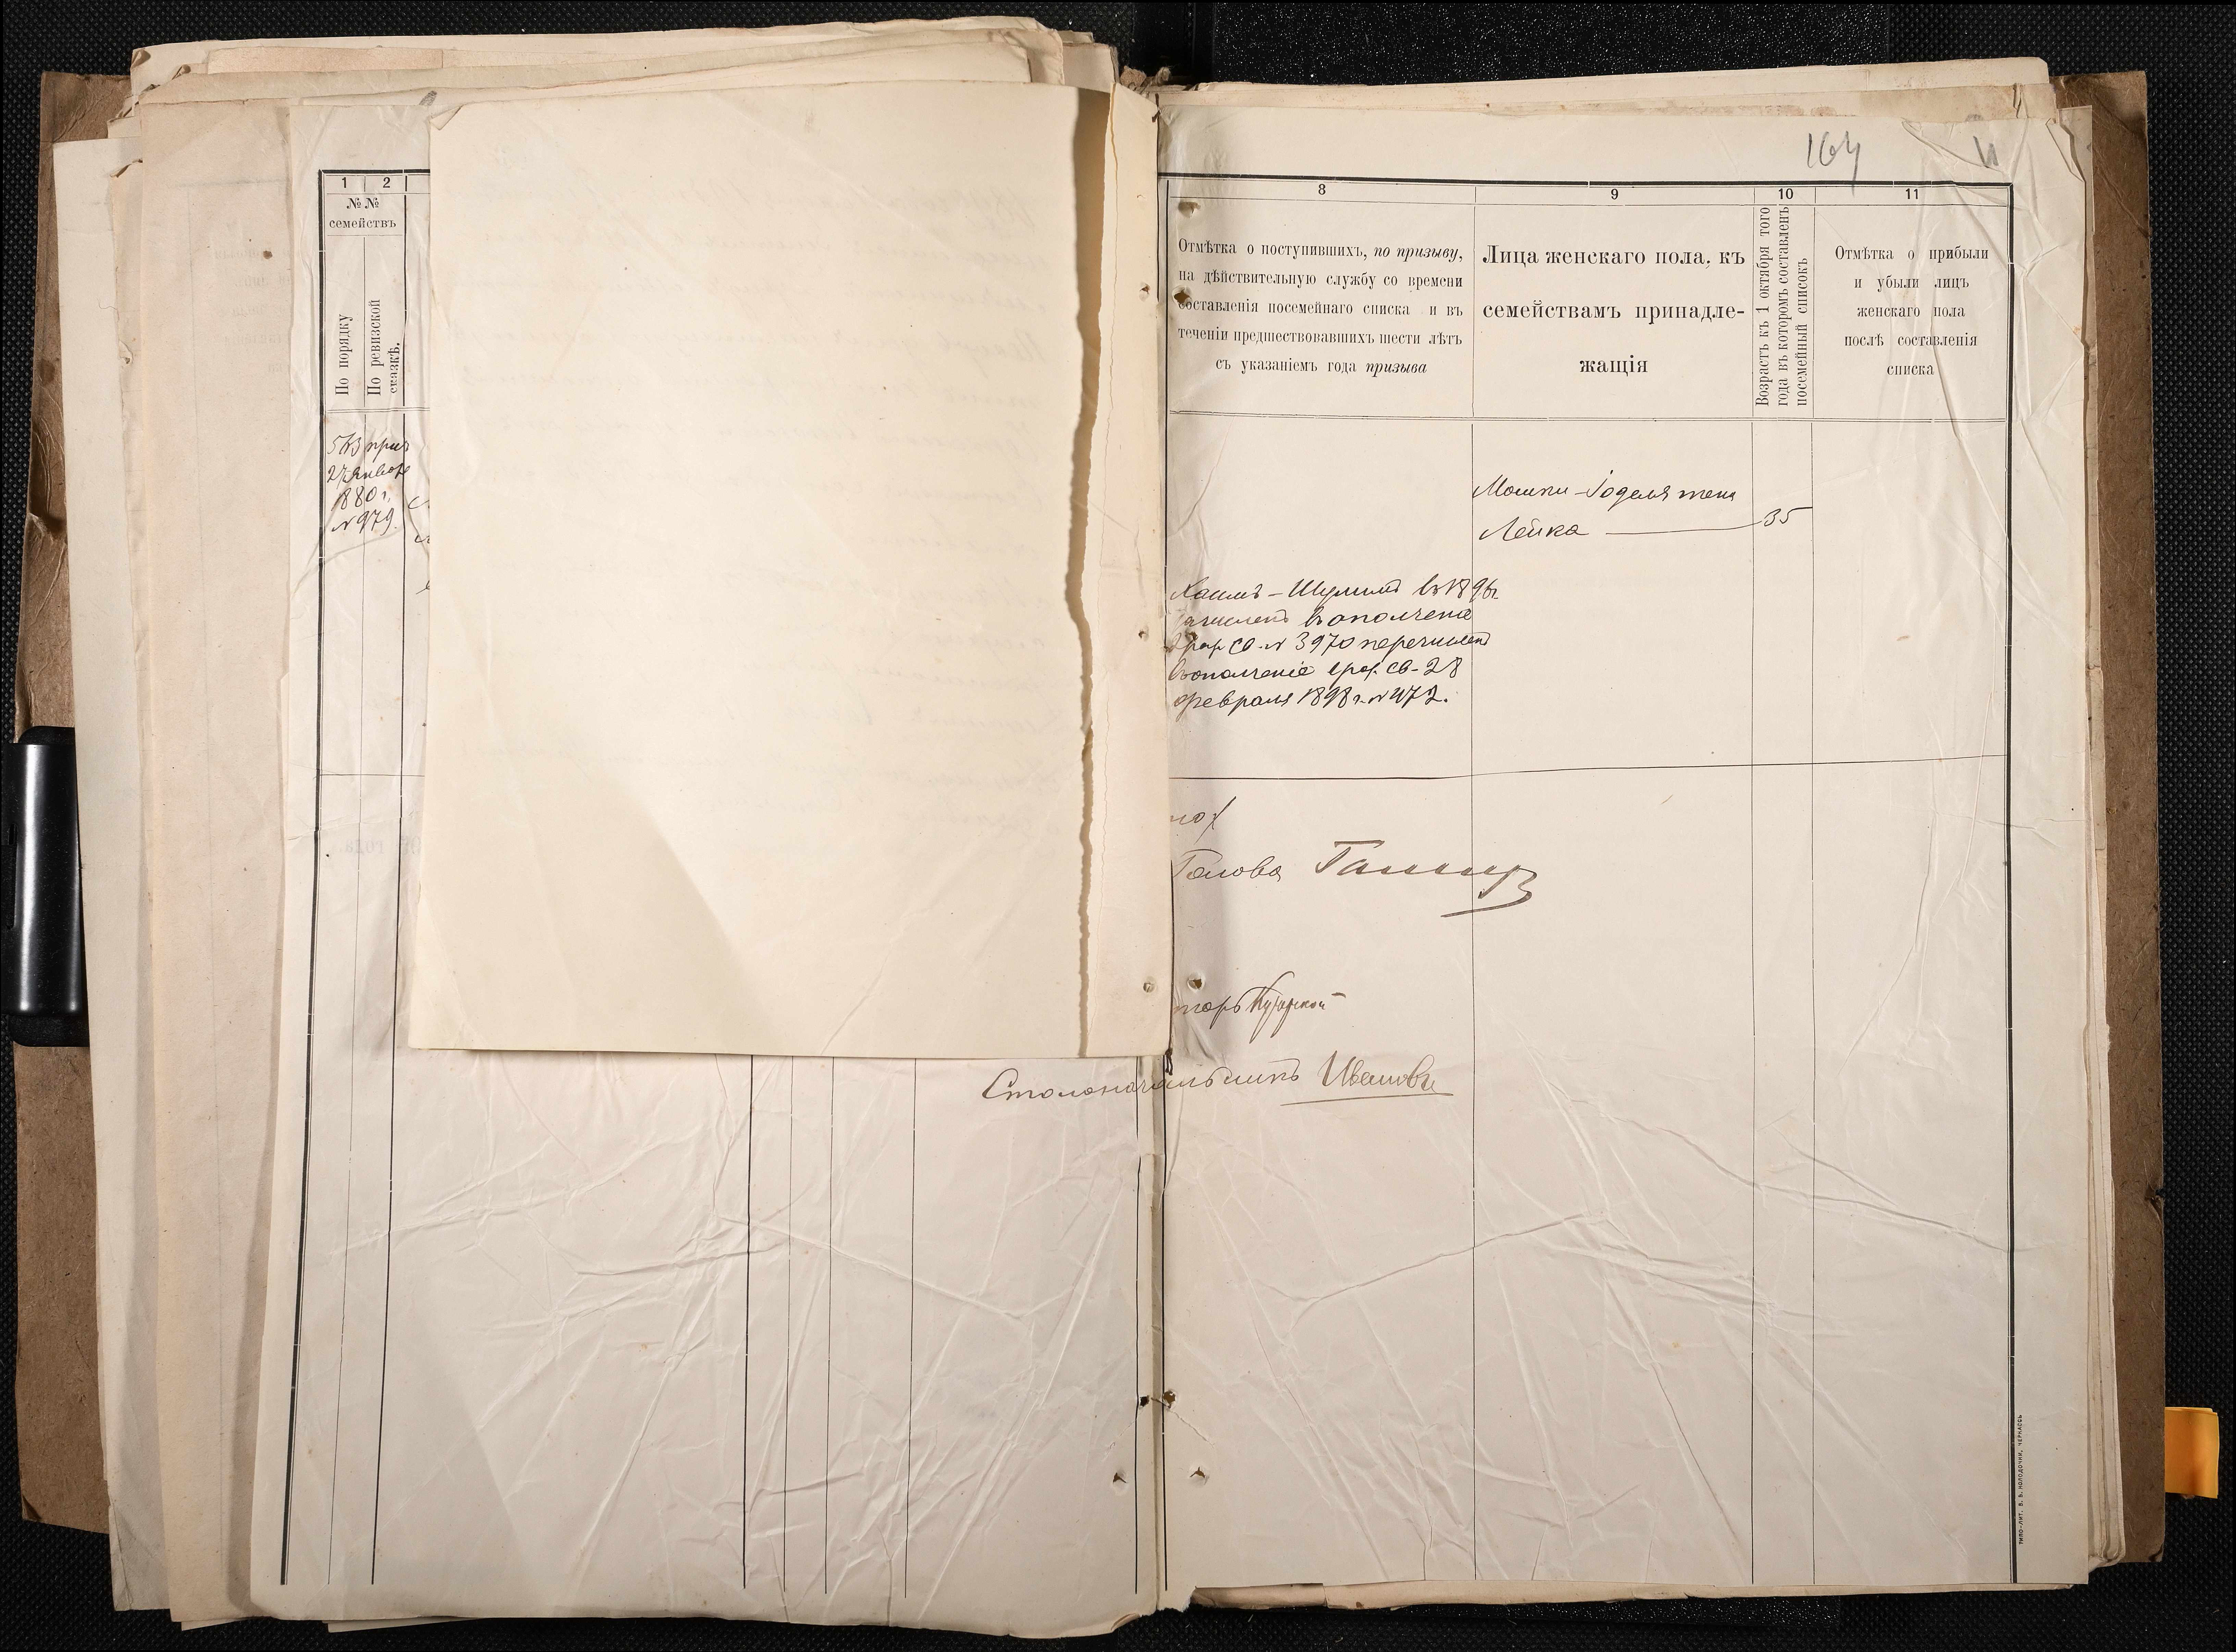 164
1 2
№ № семействъ
По порядку
По ревизской сказкѣ.
1880 г.
№ 979
8
Отмѣтка о поступившихъ, по призыву,
на дѣйствительную службу со времени
составленія посемейнаго списка и въ
теченіи предшествовавшихъ шести лѣтъ
съ указаніемъ года призыва
9
Лица женскаго пола, къ
семействамъ принадле-
жащія
10
Возрастъ къ 1 октября того
года въ которомъ составленъ
посемейный списокъ
11
Отмѣтка о прибыли
и убыли лицъ
женскаго пола
послѣ составленія
списка
Мошки-Іоделя жена
Лейка 35
Хаимъ-Шулимъ въ 1896 г.
зачисленъ въ ополченіе
2 раз. св. № 3970 перечисленъ
въ ополченіе 1 раз. св. 28
февраля 1898 г. № 472.
Голова
Столоначальникъ Ивановъ
ТИПО-ЛИТ. В. В. КОЛОДОЧКИ, ЧЕРКАССЪ